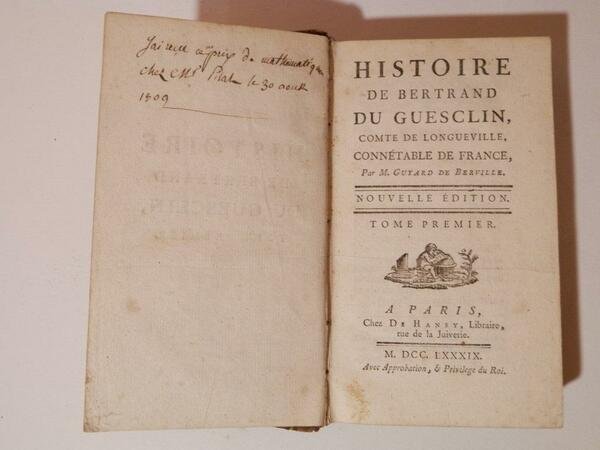 J'ai reçu ce prix de mathématique
chez Mr le 30 aoust
1809
HISTOIRE
DE BERTRAND
DU GUESCLIN,
COMTE DE LONGUEVILLE,
CONNÉTABLE DE FRANCE,
Par M. GUYARD DE BERVILLE.
NOUVELLE ÉDITION.
TOME PREMIER.
A PARIS,
Chez DE HANSY, Libraire,
rue de la Juiverie.
M. DCC. LXXXIX.
Avec Approbation, & Privilege du Roi.